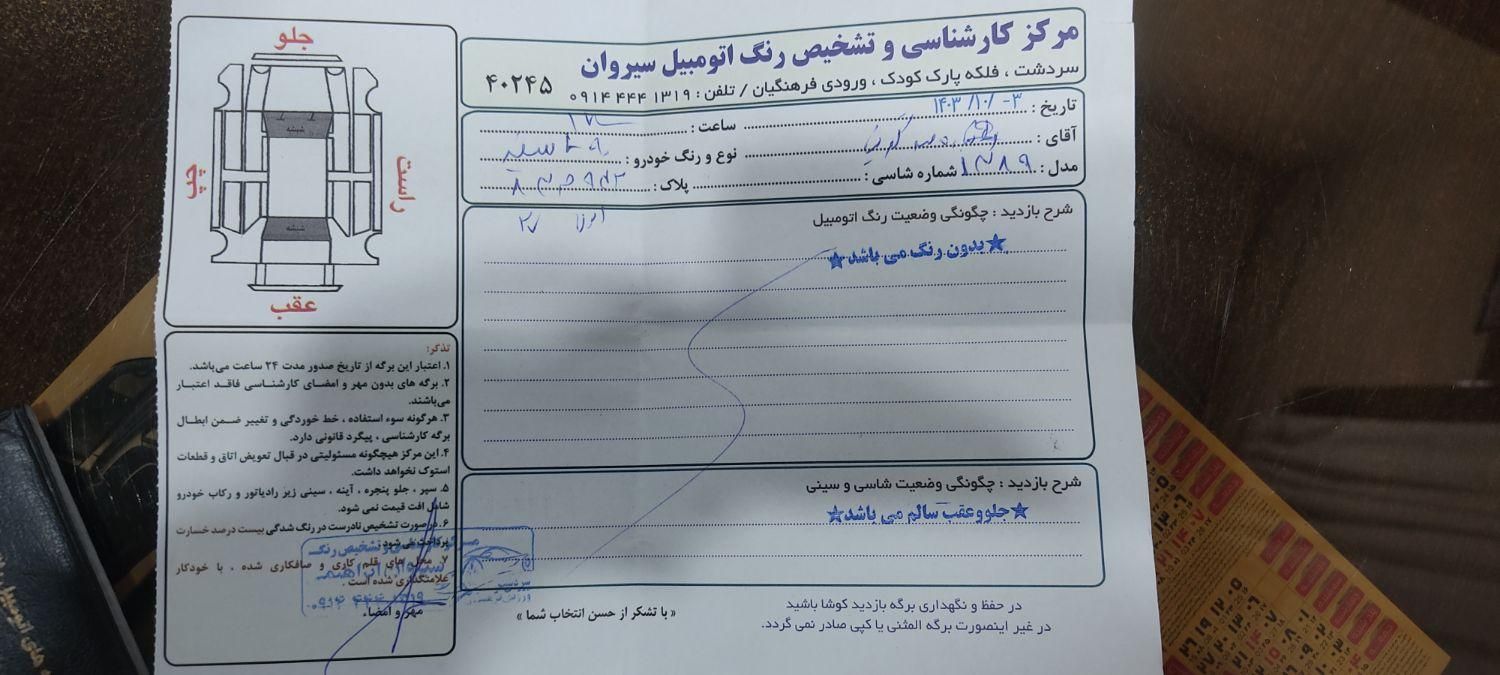 مرکز کارشناسی و تشخیص رنگ اتومبیل سیروان
سردشت ، فلکه پارک کودک ، ورودی فرهنگیان / تلفن : ۱۳۱۹ ۴۴۴ ۰۹۱۴
۴۰۲۴۵
تاریخ : ۱۴۰۳/۱۰/۰۳
ساعت :
آقای :
نوع و رنگ خودرو :
مدل : ۱۳۸۹
شماره شاسی :
پلاک :
شرح بازدید : چگونگی وضعیت رنگ اتومبیل
★بدون رنگ می باشد★
شرح بازدید : چگونگی وضعیت شاسی و سینی
★جلو و عقب سالم می باشد★
در حفظ و نگهداری برگه بازدید کوشا باشید
در غیر اینصورت برگه المثنی یا کپی صادر نمی گردد.
« با تشکر از حسن انتخاب شما »
جلو
شیشه
راست
چپ
شیشه
عقب
تذکر:
۱. اعتبار این برگه از تاریخ صدور مدت ۲۴ ساعت می‌باشد.
۲. برگه های بدون مهر و امضای کارشناسی فاقد اعتبار
می‌باشند.
۳. هرگونه سوء استفاده ، خط خوردگی و تغییر ضمن ابطال
برگه کارشناسی ، پیگرد قانونی دارد.
۴. این مرکز هیچگونه مسئولیتی در قبال تعویض اتاق و قطعات
استوک نخواهد داشت.
۵. سپر ، جلو پنجره ، آینه ، سینی زیر رادیاتور و رکاب خودرو
شامل افت قیمت نمی شود.
۶. درصورت تشخیص نادرست در رنگ شدگی بیست درصد خسارت
پرداخت می شود.
۷. محل های قلم کاری و صافکاری شده ، با خودکار
علامتگذاری شده است.
مهر و امضاء